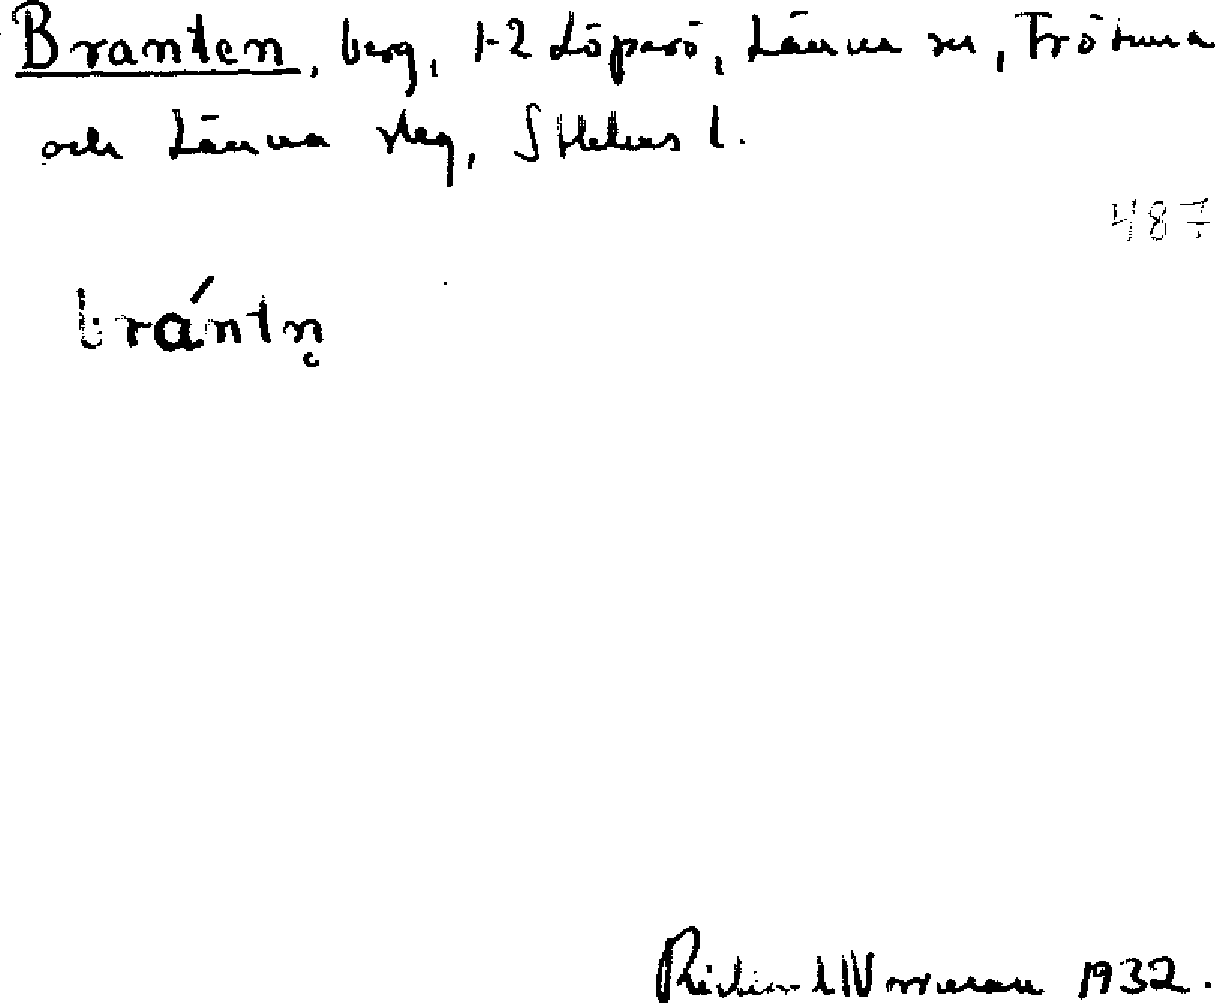 Branten, berg, 1-2 Löparö, Länna sn, Frötuna
och Länna slg, Sthlms l.
487
brántn̥
Richard Norrman 1932.